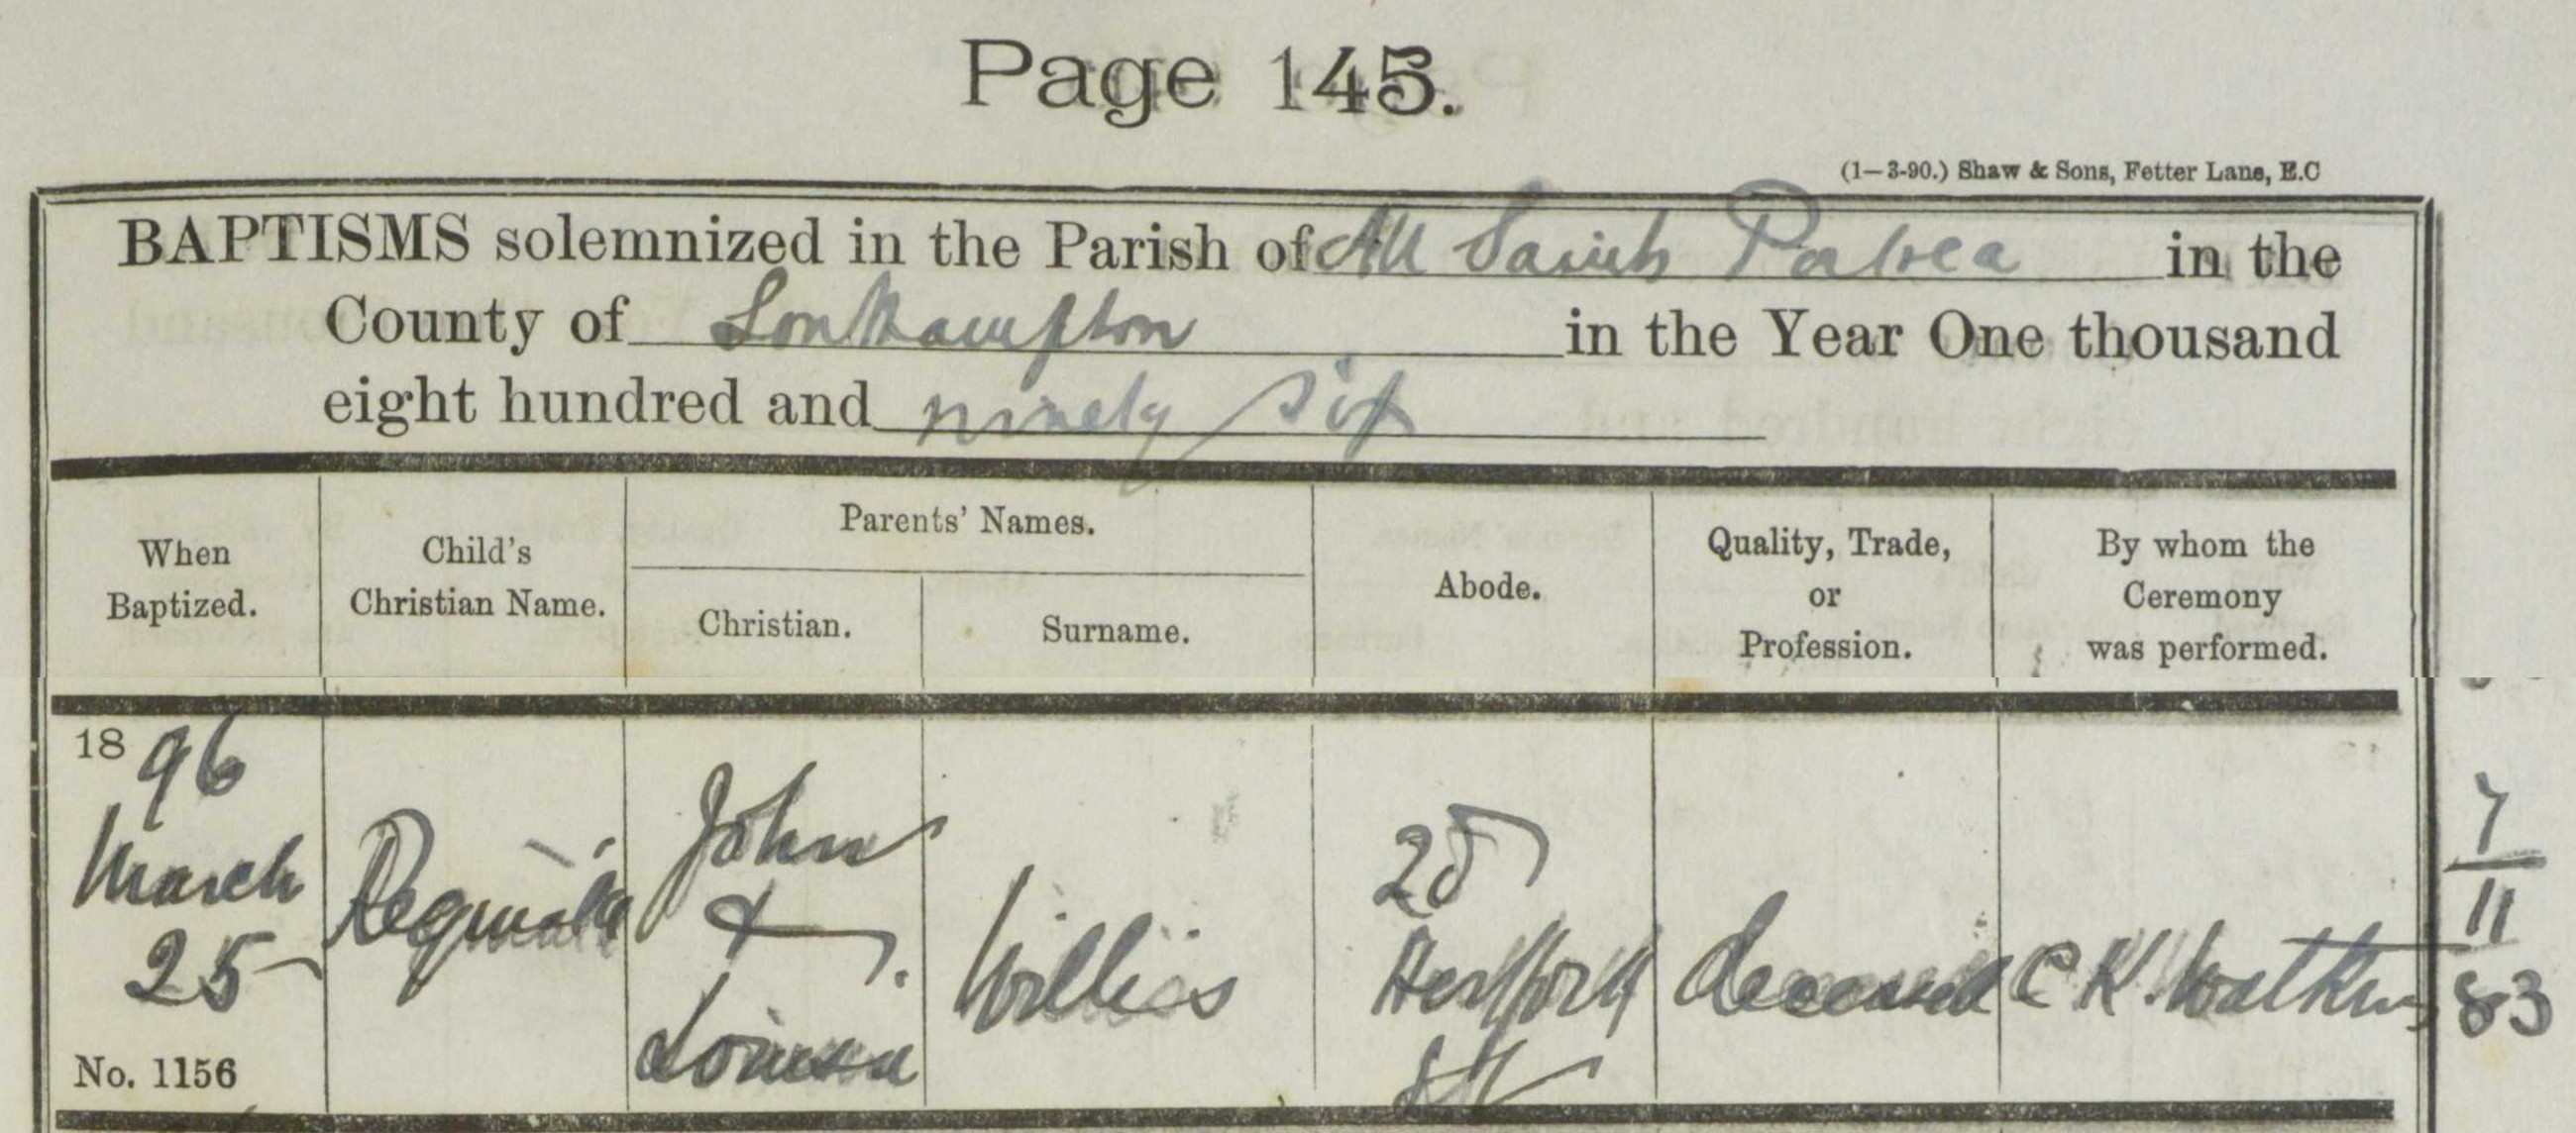 Page 145.
(1-3-90.) Shaw & Sons, Fetter Lane, E.C
BAPTISMS solemnized in the Parish of All Saints Portsea in the
County of Southampton in the Year One thousand
eight hundred and ninety six
When
Baptized.
Child's
Christian Name.
Parents' Names.
Christian.
Surname.
Abode.
Quality, Trade,
or
Profession.
By whom the
Ceremony
was performed.
1896
March
25
No. 1156
Reginald
John
&
Louisa
Willies
25
Hertford
St
deceased
C K. Watkins
7
11
83